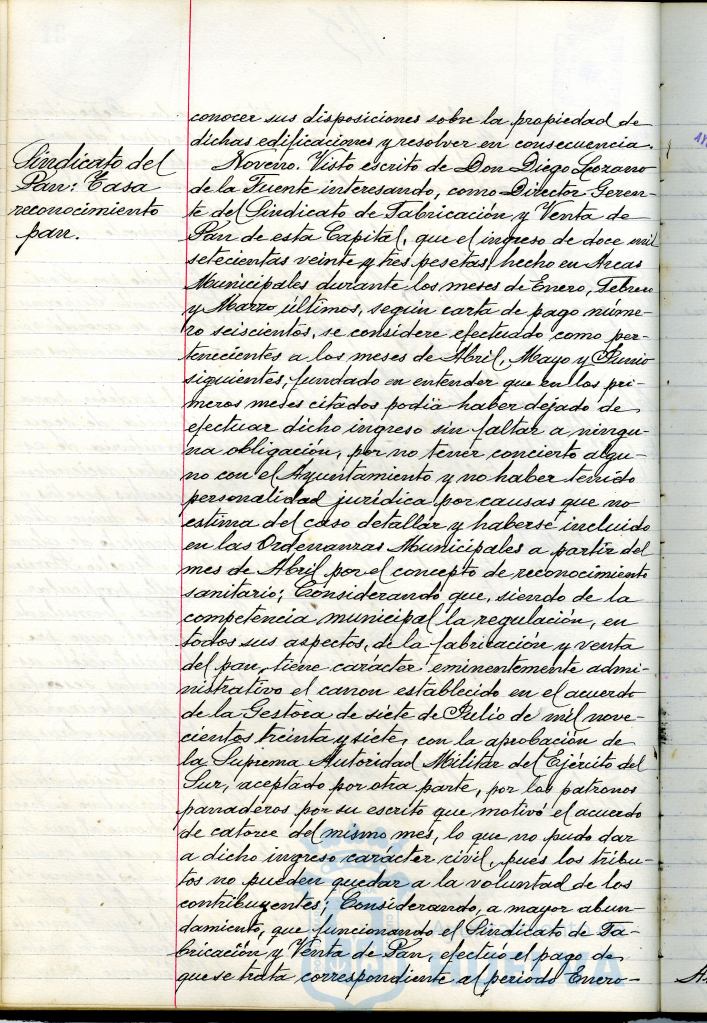 conocer sus disposiciones sobre la propiedad de
dichas edificaciones y resolver en consecuencia.
Sindicato del
Pan: Tasa
reconocimiento
pan.
Noveno. Visto escrito de Don Diego Lozano
de la Fuente interesando, como Director Geren-
te del Sindicato de Fabricación y Venta de
Pan de esta Capital, que el ingreso de doce mil
setecientas veinte y tres pesetas, hecho en Arcas
Municipales durante los meses de Enero, Febrero
y Marzo últimos, según carta de pago núme-
ro seiscientos, se considere efectuado como per-
tenecientes a los meses de Abril, Mayo y Junio
siguientes, fundado en entender que en los pri-
meros meses citados podia haber dejado de
efectuar dicho ingreso sin faltar a ningu-
na obligación, por no tener concierto algu-
no con el Ayuntamiento y no haber tenido
personalidad jurídica por causas que no
estima del caso detallar y haberse incluido
en las Ordenanzas Municipales a partir del
mes de Abril por el concepto de reconocimiento
sanitario; Considerando que, siendo de la
competencia municipal la regulación, en
todos sus aspectos, de la fabricación y venta
del pan, tiene carácter eminentemente admi-
nistrativo el canon establecido en el acuerdo
de la Gestora de siete de Julio de mil nove-
cientos treinta y siete, con la aprobación de
la Suprema Autoridad Militar del Ejército del
Sur, aceptado por otra parte, por los patronos
panaderos por su escrito que motivó el acuerdo
de catorce del mismo mes, lo que no pudo dar
a dicho ingreso carácter civil, pués los tribu-
tos no pueden quedar a la voluntad de los
contribuyentes; Considerando, a mayor abun-
damiento, que funcionando el Sindicato de Fa-
bricación y Venta de Pan, efectuó el pago de
que se trata correspondiente al período Enero-